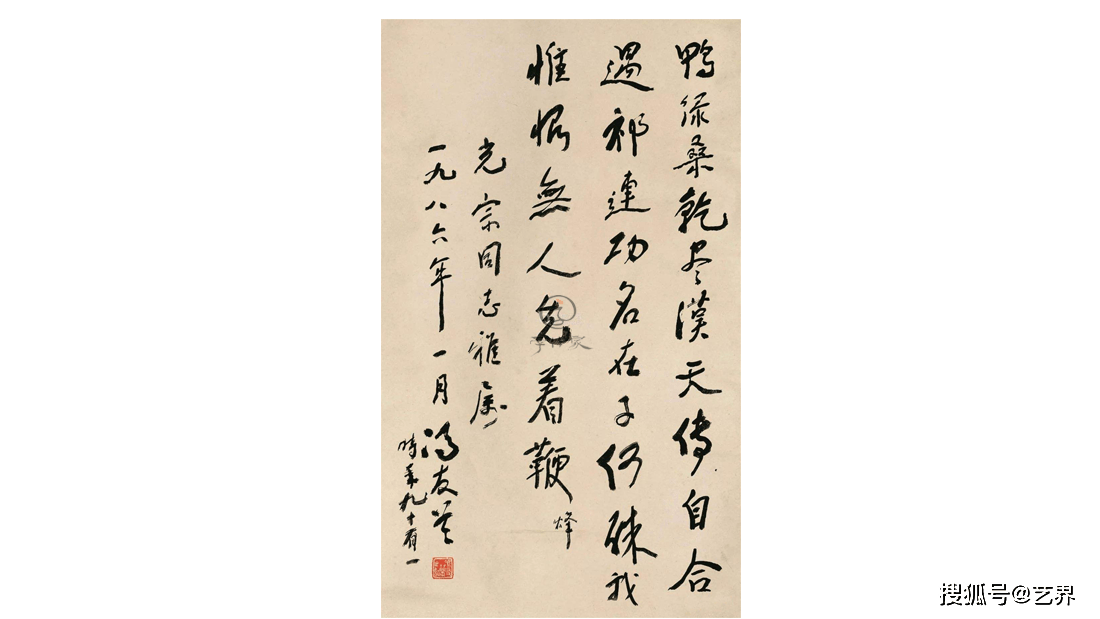 鴨绿桑乾尽漢天傳自合
過祁連功名在子何殊我
惟恨無人先着鞭 烽
光宗同志雅属
一九八六年一月 馮友兰
時年九十有一
搜狐号@艺界